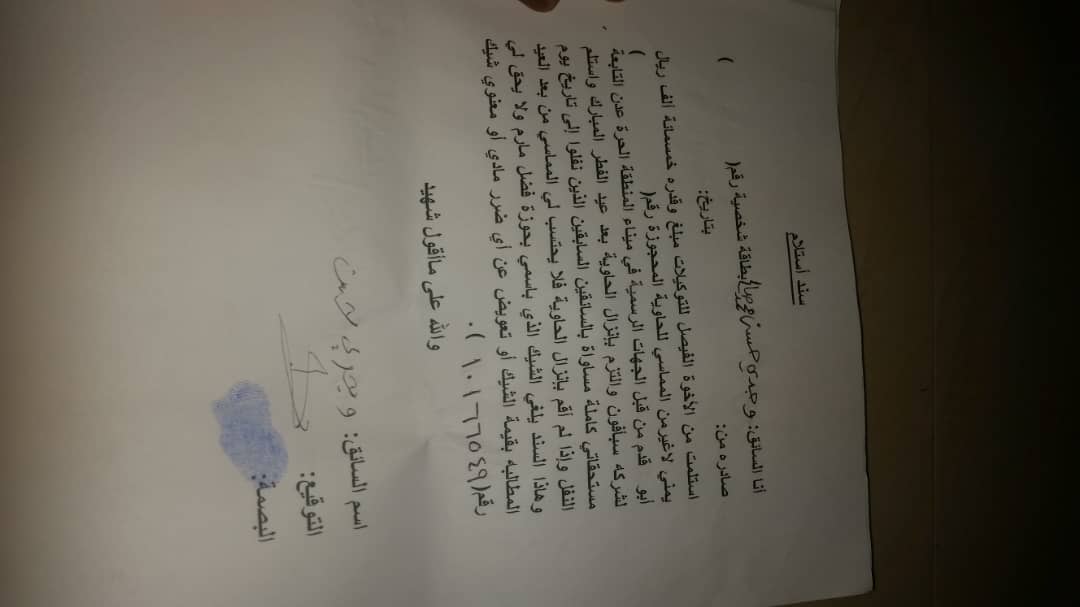 سند أستلام
أنا السائق: وجدي حسن بطاقة شخصية رقم(
)
صادره من: بتاريخ:
استلمت من الأخوة الفيصل للتوكيلات مبلغ وقدره خمسمائة ألف ريال
يمني لاغير من المماسي للحاوية المحجوزة رقم( )
أبو قدم من قبل الجهات الرسمية في ميناء المنطقة الحرة عدن التابعة
لشركه سبأفون والتزم بإنزال الحاوية بعد عيد الفطر المبارك واستلم
مستحقاتي كاملة مساواة بالسائقين السابقين الذين نقلوا إلى تاريخ يوم
النقل وإذا لم أقم بإنزال الحاوية فلا يحتسب لي المماسي من بعد العيد
وهاذا السند يلغي الشيك الذي باسمي بحوزة فضل مارم ولا يحق لي
المطالبه بقيمة الشيك أو تعويض عن أي ضرر مادي أو معنوي شيك
رقم(٩٠١٦٦٥٤٩ ).
والله على ماأقول شهيد
اسم السائق: وجدي حسن
التوقيع:
البصمة: